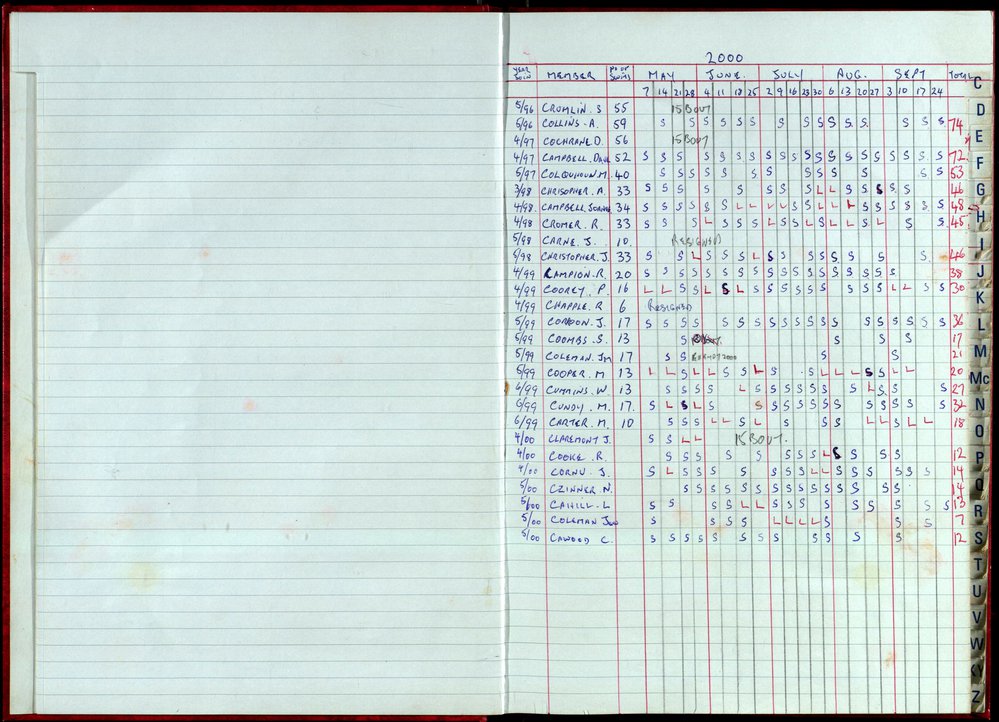 2000
YEAR JOIN MEMBER No OF SWIMS MAY JUNE. JULY AUG. SEPT TOTAL
7 14 21 28 4 11 18 25 2 9 16 23 30 6 13 20 27 3 10 17 24
5/96 CROMLIN. S 55 IS BOUT
5/96 COLLINS. A. 59 S S S S S S S S S S S S S S S S 74
4/97 COCHRANE D. 56 IS BOUT
4/97 CAMPBELL. 52 S S S S S S S S S S S S S S S S S S S S 72
5/97 COLQUHOUN. M. 40 S S S S S S S S S S S S S 53
3/98 CHRISTOPHER. A. 33 S S S S S S S S L L S S S S S 46
4/98. CAMPBELL 34 S S S S S S L L L L S S L L L S S S S S S 48
4/98 CROMER. R. 33 S S S L S S S L S S L S L L S L S S 45
5/98 CARNE. J. 10. RESIGNED
5/98 CHRISTOPHER. J. 33 S S L S S S L S S S S S S S S 46
4/99 CAMPION. R. 20 S S S S S S S S S S S S S S S S S S 38
4/99 COOREY. P. 16 L L S S L S L S S S S S S S S S L L S S 30
4/99 CHAPPLE. R 6 RESIGNED
5/99 CONDON. J. 17 S S S S S S S S S S S S S S S S S S S 36
5/99 COOMBS. S. 13 S S S S 17
5/99 COLEMAN. JM 17 S S EXEMPT 2000 S S 21
5/99 COOPER. M 13 L L S L L S S L S S L L L S S L L 20
6/99 CUMMINS. W. 13 S S S L S S S S S S S L S S S 27
6/99 CUNDY. M. 17. S L S L S S S S S S S S S S S S S 32
6/99 CARTER. M. 10 S S S L L S L S S S L S L L 18
4/00 CLAREMONT J. S S L L IS BOUT.
4/00 COOKE. R. S S S S S S S S L S S S S 12
4/00 CORNU. J. S L S S S S S S S L L S S S S S S 14
5/00 CZINNER. N. S S S S S S S S S S S S S S 14
5/00 CAHILL. L S S S S L L S S S S S S S S S 13
5/00 COLEMAN S S S S L L L L S S S 7
5/00 CAWOOD C. S S S S S S S S S S S S 12
C
D
E
F
G
H
I
J
K
L
M
Mc
N
O
P
Q
R
S
T
U
V
W
XY
Z